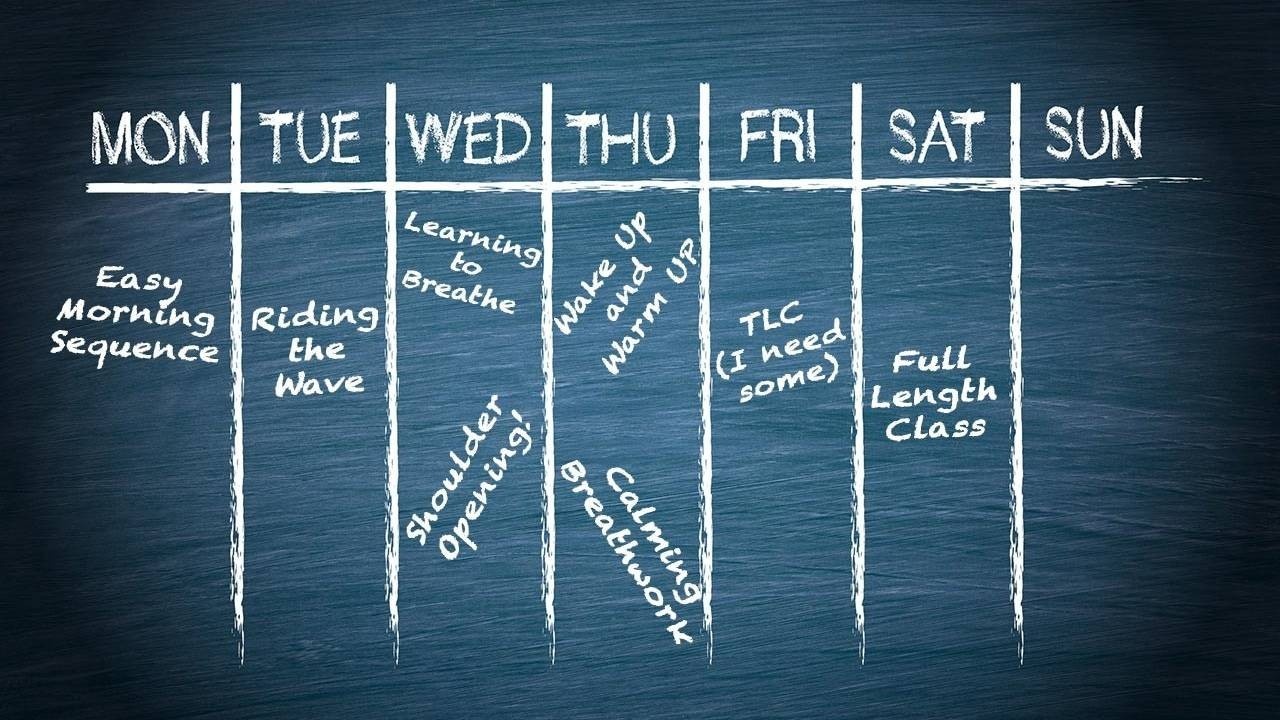 MON TUE WED THU FRI SAT SUN
Easy
Morning
Sequence
Riding
the
Wave
Learning
to
Breathe
Shoulder
Opening!
Wake Up
and
Warm Up
Calming
Breathwork
TLC
(I need
some)
Full
Length
Class